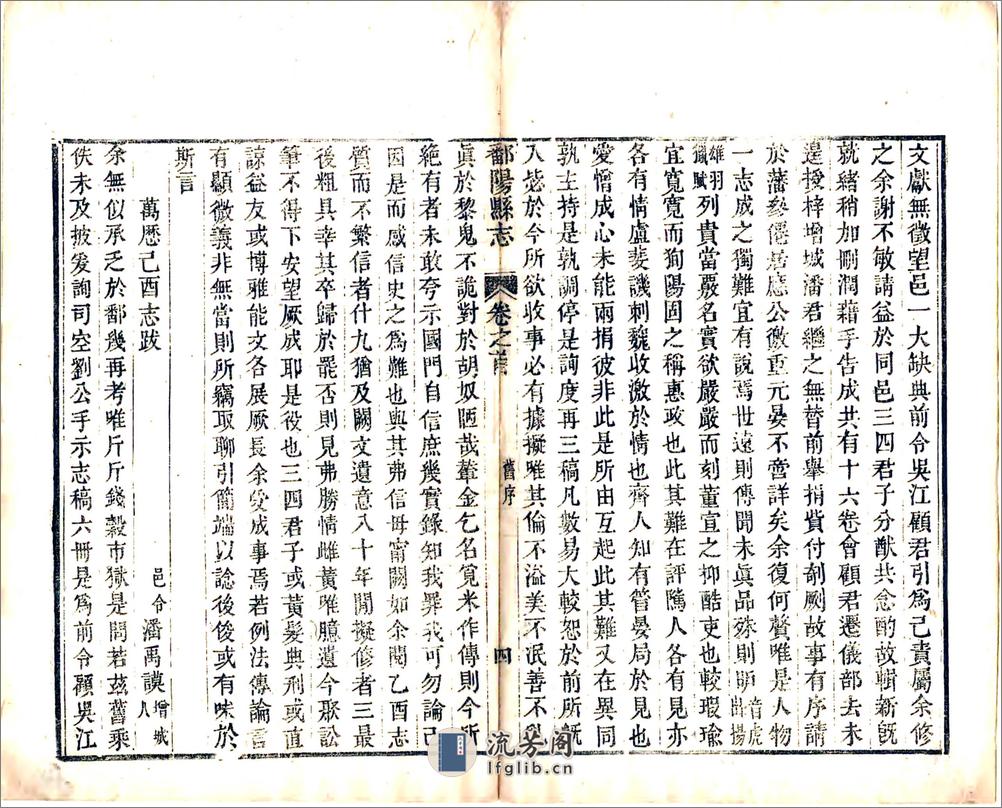 文獻無徵望邑一大缺典前令吳江顧君引爲己責屬余修
之余謝不敏請益於同邑三四君子分猷共念酌故輯新旣
就緒稍加刪潤藉手告成共有十六卷會顧君遷儀部去未
遑授梓增城潘君繼之無替前舉捐貲付剞劂故事有序請
於藩參僊居應公徼重元晏不啻詳矣余復何贅唯是人物
一志成之獨難宜有說焉世遠則傳聞未眞品殊則
音虎出揚
雄羽獵賦
列貴當嚴名實欲嚴嚴而刻董宣之抑酷吏也較瑕瑜
宜寬寬而狥陽固之稱惠政也此其難在評隲人各有見亦
各有情盧斐譏刺魏收激於情也齊人知有管晏局於見也
愛憎成心未能兩捐彼非此是所由互起此其難又在異同
孰主持是孰調停是詢度再三稿凡數易大較恕於前所旣
入毖於今所欲收事必有據擬唯其倫不溢美不泯善不
眞於黎鬼不詭對於胡奴陋哉輦金乞名覓米作傳則今所
絶有者未敢夸示國門自信庶幾實錄知我罪我可勿論已
因是而感信史之爲難也與其弗信毋甯闕如余閱乙酉志
質而不繁信者什九猶及闕文遺意八十年閒擬修者三最
後粗具幸其卒歸於罷否則見弗勝情雌黃唯臆遺今聚訟
筆不得下安望厥成耶是役也三四君子或黃髮典刑或直
諒益友或博雅能文各展厥長余受成事焉若例法傳論言
有顯微義非無當則所竊取聊引簡端以諗後後或有味於
斯言
萬歷己酉志跋
邑令潘禹謨增城人
余無似承乏於鄱幾再考唯斤斤錢穀市獄是問若茲舊乘
佚未及披爰詢司空劉公手示志稿六冊是爲前令顧吳江
鄱陽縣志
卷之首
舊序
四
流芳阁
lfglib.cn